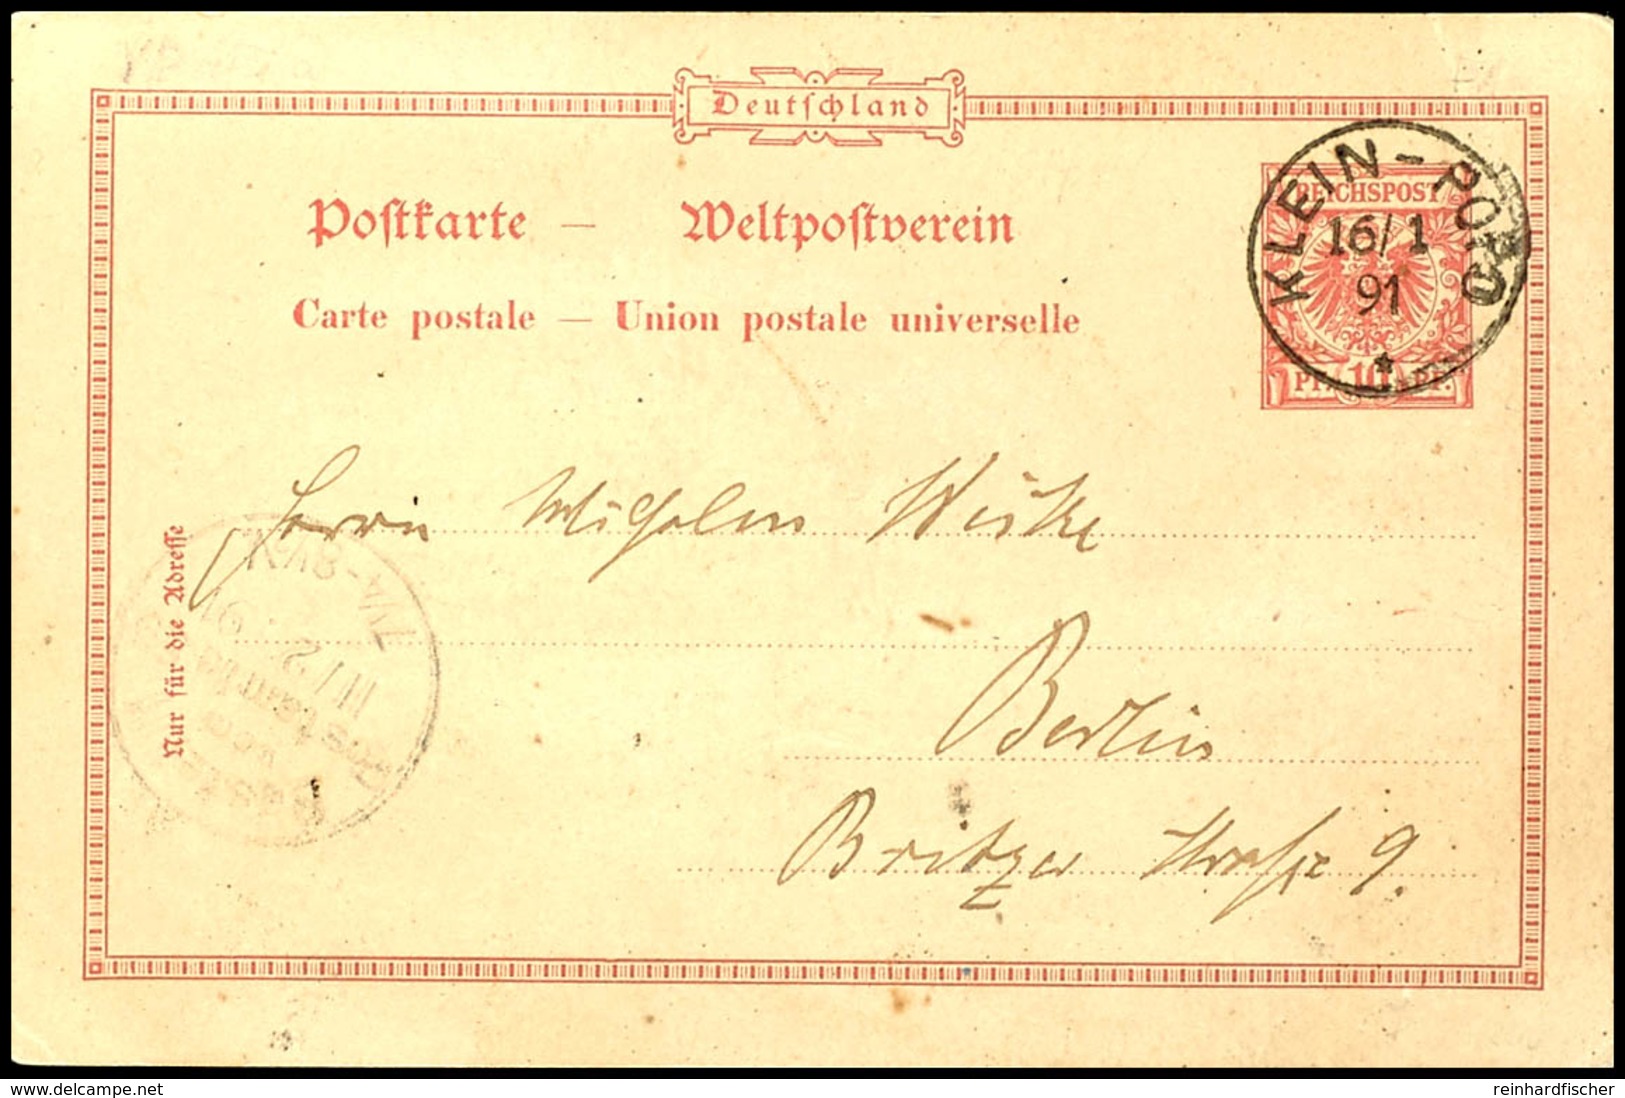 Deutschland
Postkarte — Weltpostverein
Carte postale — Union postale universelle
REICHSPOST
KLEIN-POPO
16/1
91
*
10
Herrn Wilhelm
Berlin
Britzer Straße 9.
Nur für die Adresse
delcampe.net
reinhardfischer